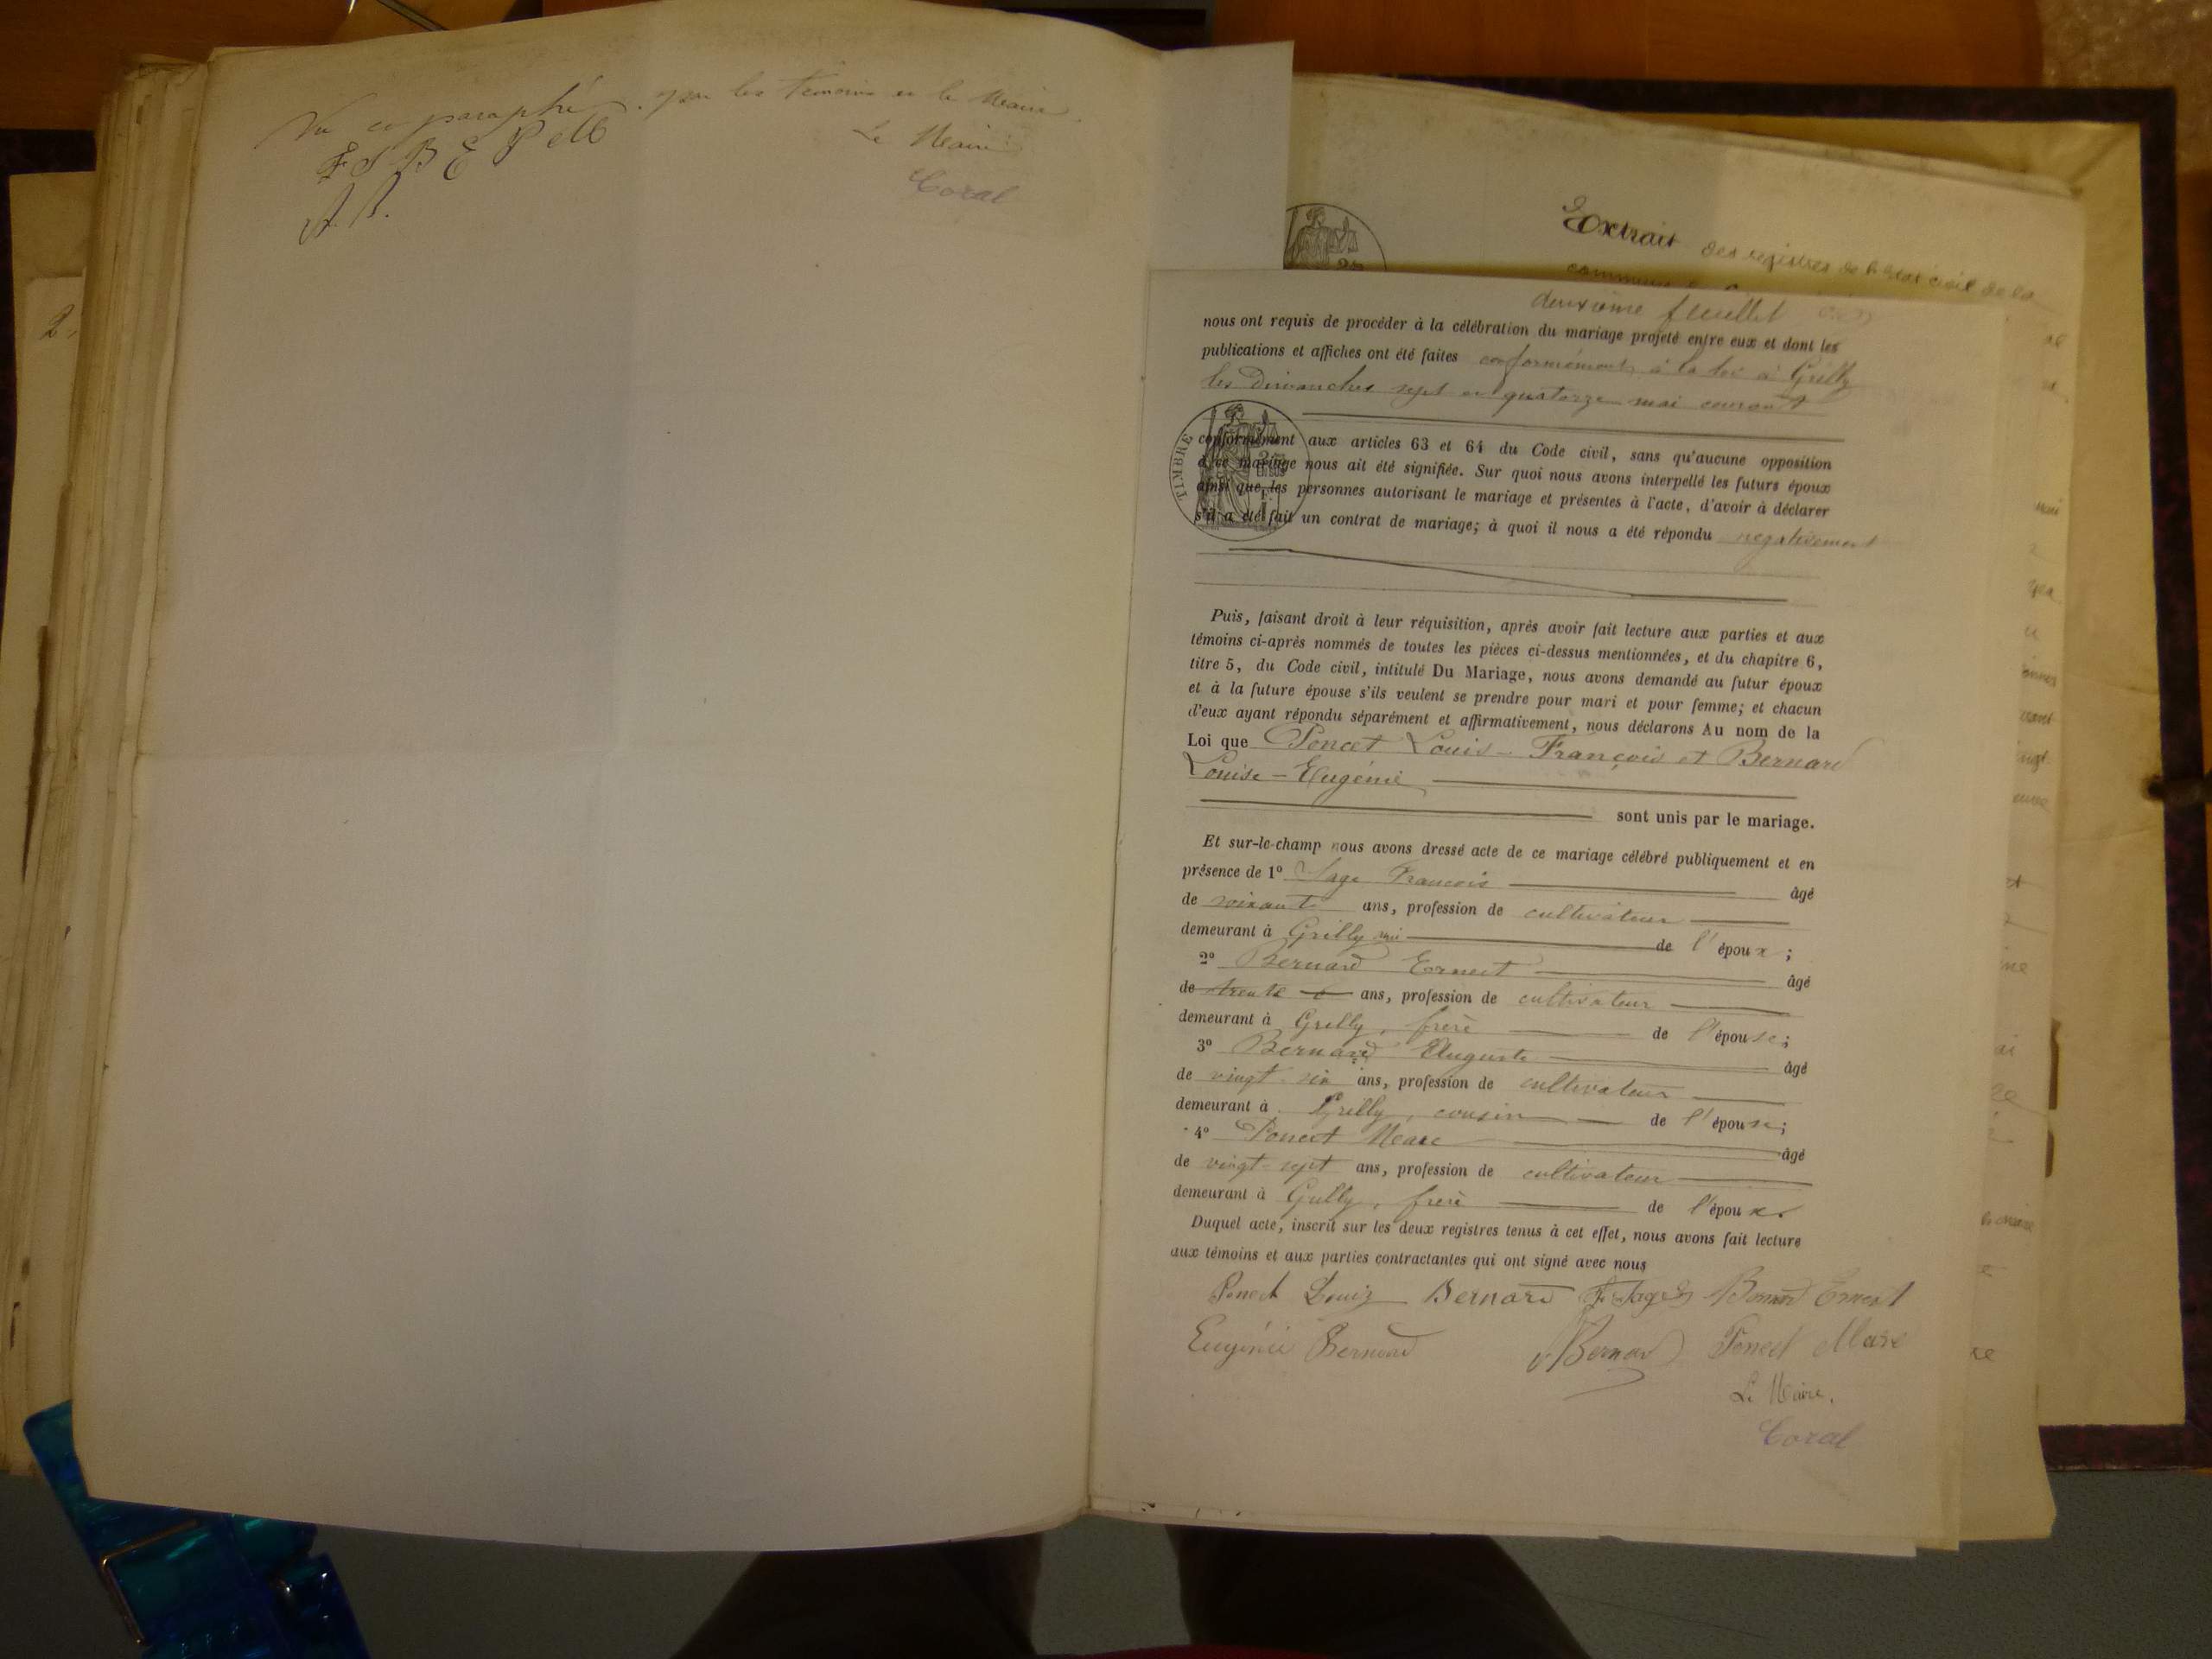 Vu et paraphé par les témoins et le Maire.
F S B E P M
Le Maire
A. B.
Coral
2
Extrait des registres de l'état civil de la
commune
deuxième feuillet
nous ont requis de procéder à la célébration du mariage projeté entre eux et dont les
publications et affiches ont été faites conformément à la loi à Grilly
les Dimanches sept et quatorze mai courant
TIMBRE
conformément aux articles 63 et 64 du Code civil, sans qu'aucune opposition
à ce mariage nous ait été signifiée. Sur quoi nous avons interpellé les futurs époux
ainsi que les personnes autorisant le mariage et présentes à l'acte, d'avoir à déclarer
s'il a été fait un contrat de mariage; à quoi il nous a été répondu négativement
Puis, faisant droit à leur réquisition, après avoir fait lecture aux parties et aux
témoins ci-après nommés de toutes les pièces ci-dessus mentionnées, et du chapitre 6,
titre 5, du Code civil, intitulé Du Mariage, nous avons demandé au futur époux
et à la future épouse s'ils veulent se prendre pour mari et pour femme; et chacun
d'eux ayant répondu séparément et affirmativement, nous déclarons Au nom de la
Loi que Poncet Louis-François et Bernard
Louise-Eugénie
sont unis par le mariage.
Et sur-le-champ nous avons dressé acte de ce mariage célébré publiquement et en
présence de 1º Sage François âgé
de soixante ans, profession de cultivateur
demeurant à Grilly ami de l'époux;
2º Bernard Ernest âgé
de trente ans, profession de cultivateur
demeurant à Grilly, frère de l'épouse;
3º Bernard Auguste âgé
de vingt-six ans, profession de cultivateur
demeurant à Grilly, cousin de l'épouse;
4º Poncet Marc âgé
de vingt-sept ans, profession de cultivateur
demeurant à Grilly, frère de l'époux.
Duquel acte, inscrit sur les deux registres tenus à cet effet, nous avons fait lecture
aux témoins et aux parties contractantes qui ont signé avec nous
Poncet Louis Bernard F. Sage Bernard Ernest
Eugénie Bernard Bernard Poncet Marc
Le Maire,
Coral